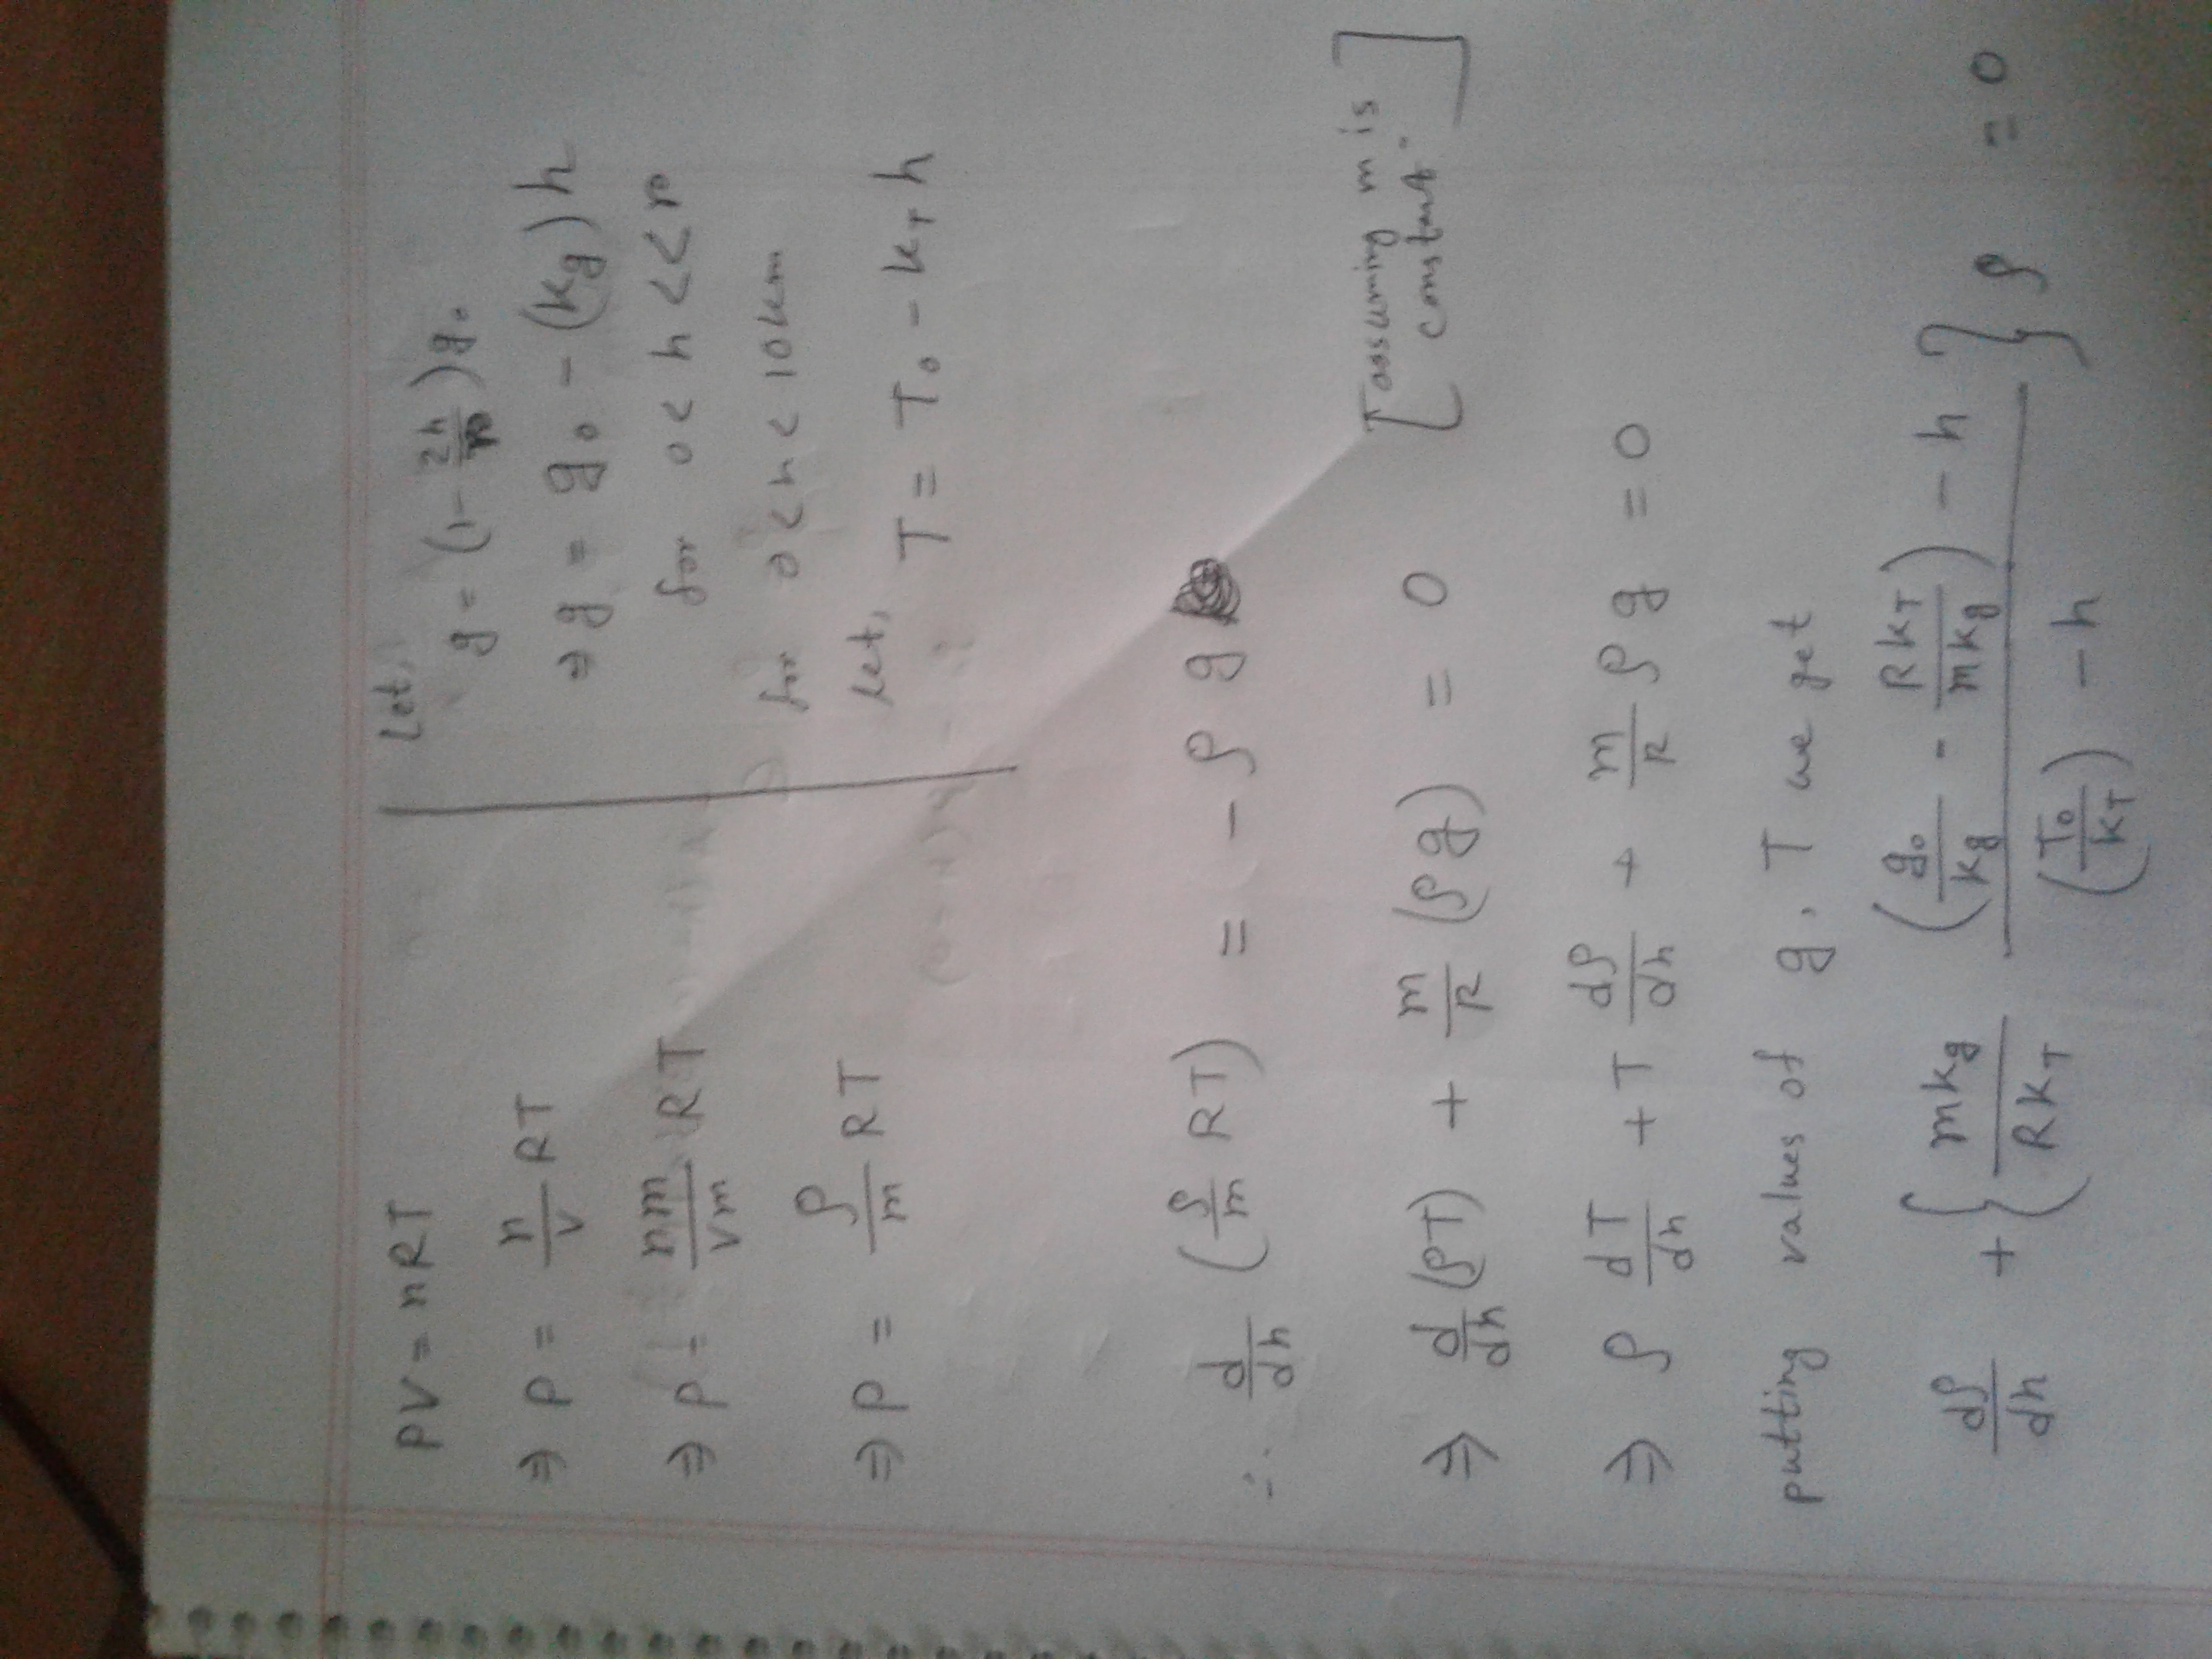 PV = nRT
⇒ P = n/V RT
⇒ P = nm/Vm RT
⇒ P = ρ/m RT
Let,
g = (1 - 2h/r0) g0
⇒ g = g0 - (kg) h
for 0 < h << r0
for 0 < h < 10 km
let,
T = T0 - kT h
∴ d/dh (ρ/m RT) = - ρ g
⇒ d/dh (ρT) + m/R (ρg) = 0 [assuming m is
constant]
⇒ ρ dT/dh + T dρ/dh + m/R ρ g = 0
putting values of g, T we get
dρ/dh + { mkg/RkT ((g0/kg - RkT/mkg) - h)/((T0/kT) - h) } ρ = 0